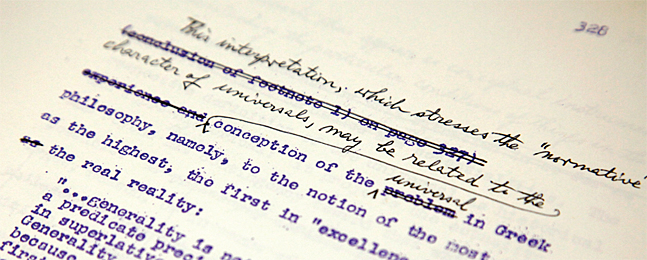 328
This interpretation, which stresses the "normative"
(conclusion of footnote 1) on page 327)
character of universals, may be related to the
experience and conception of the problem in Greek
universal
philosophy, namely, to the notion of the most
as the highest, the first in "excellenc
as the real reality:
"...generality is
a predicate preci
in superlativ
Generality
because
first